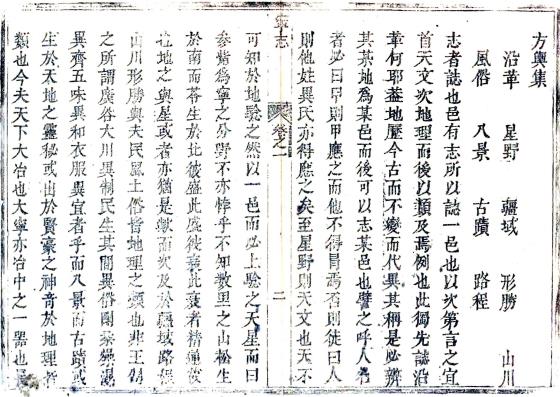 方輿集
沿革 星野 疆域 形勝 山川
風俗 八景 古蹟 路程
志者誌也邑有志所以誌一邑也以次第言之宜
首天文次地理而後以類及焉例也此獨先誌沿
革何耶葢地歷今古而不變而代異其稱是必辨
其某地爲某邑而後可以志某邑也譬之呼人者
者必曰甲則甲應之而他不得冒焉否則徒曰人
則他姓異氏亦得應之矣至星野則天文也天不
寧志 卷之一 二
可知於地驗之然以一邑而必上驗之天星而曰
參觜爲寧之分野不亦悖乎不知數里之山松生
於南而苓生於北彼盛此盛彼衰此衰者精
也地之與星或者亦猶是歟而次及於疆域路程
山川形勝與夫民風土俗皆地理之類也非王制
之所謂廣谷大川異制民生其間異俗剛柔燥濕
異齊五味異和衣服異宜者乎而八景而古蹟或
生於天地之靈秘或出於賢豪之神奇於地理者
類也今夫天下大冶也大寧亦冶中之一器也